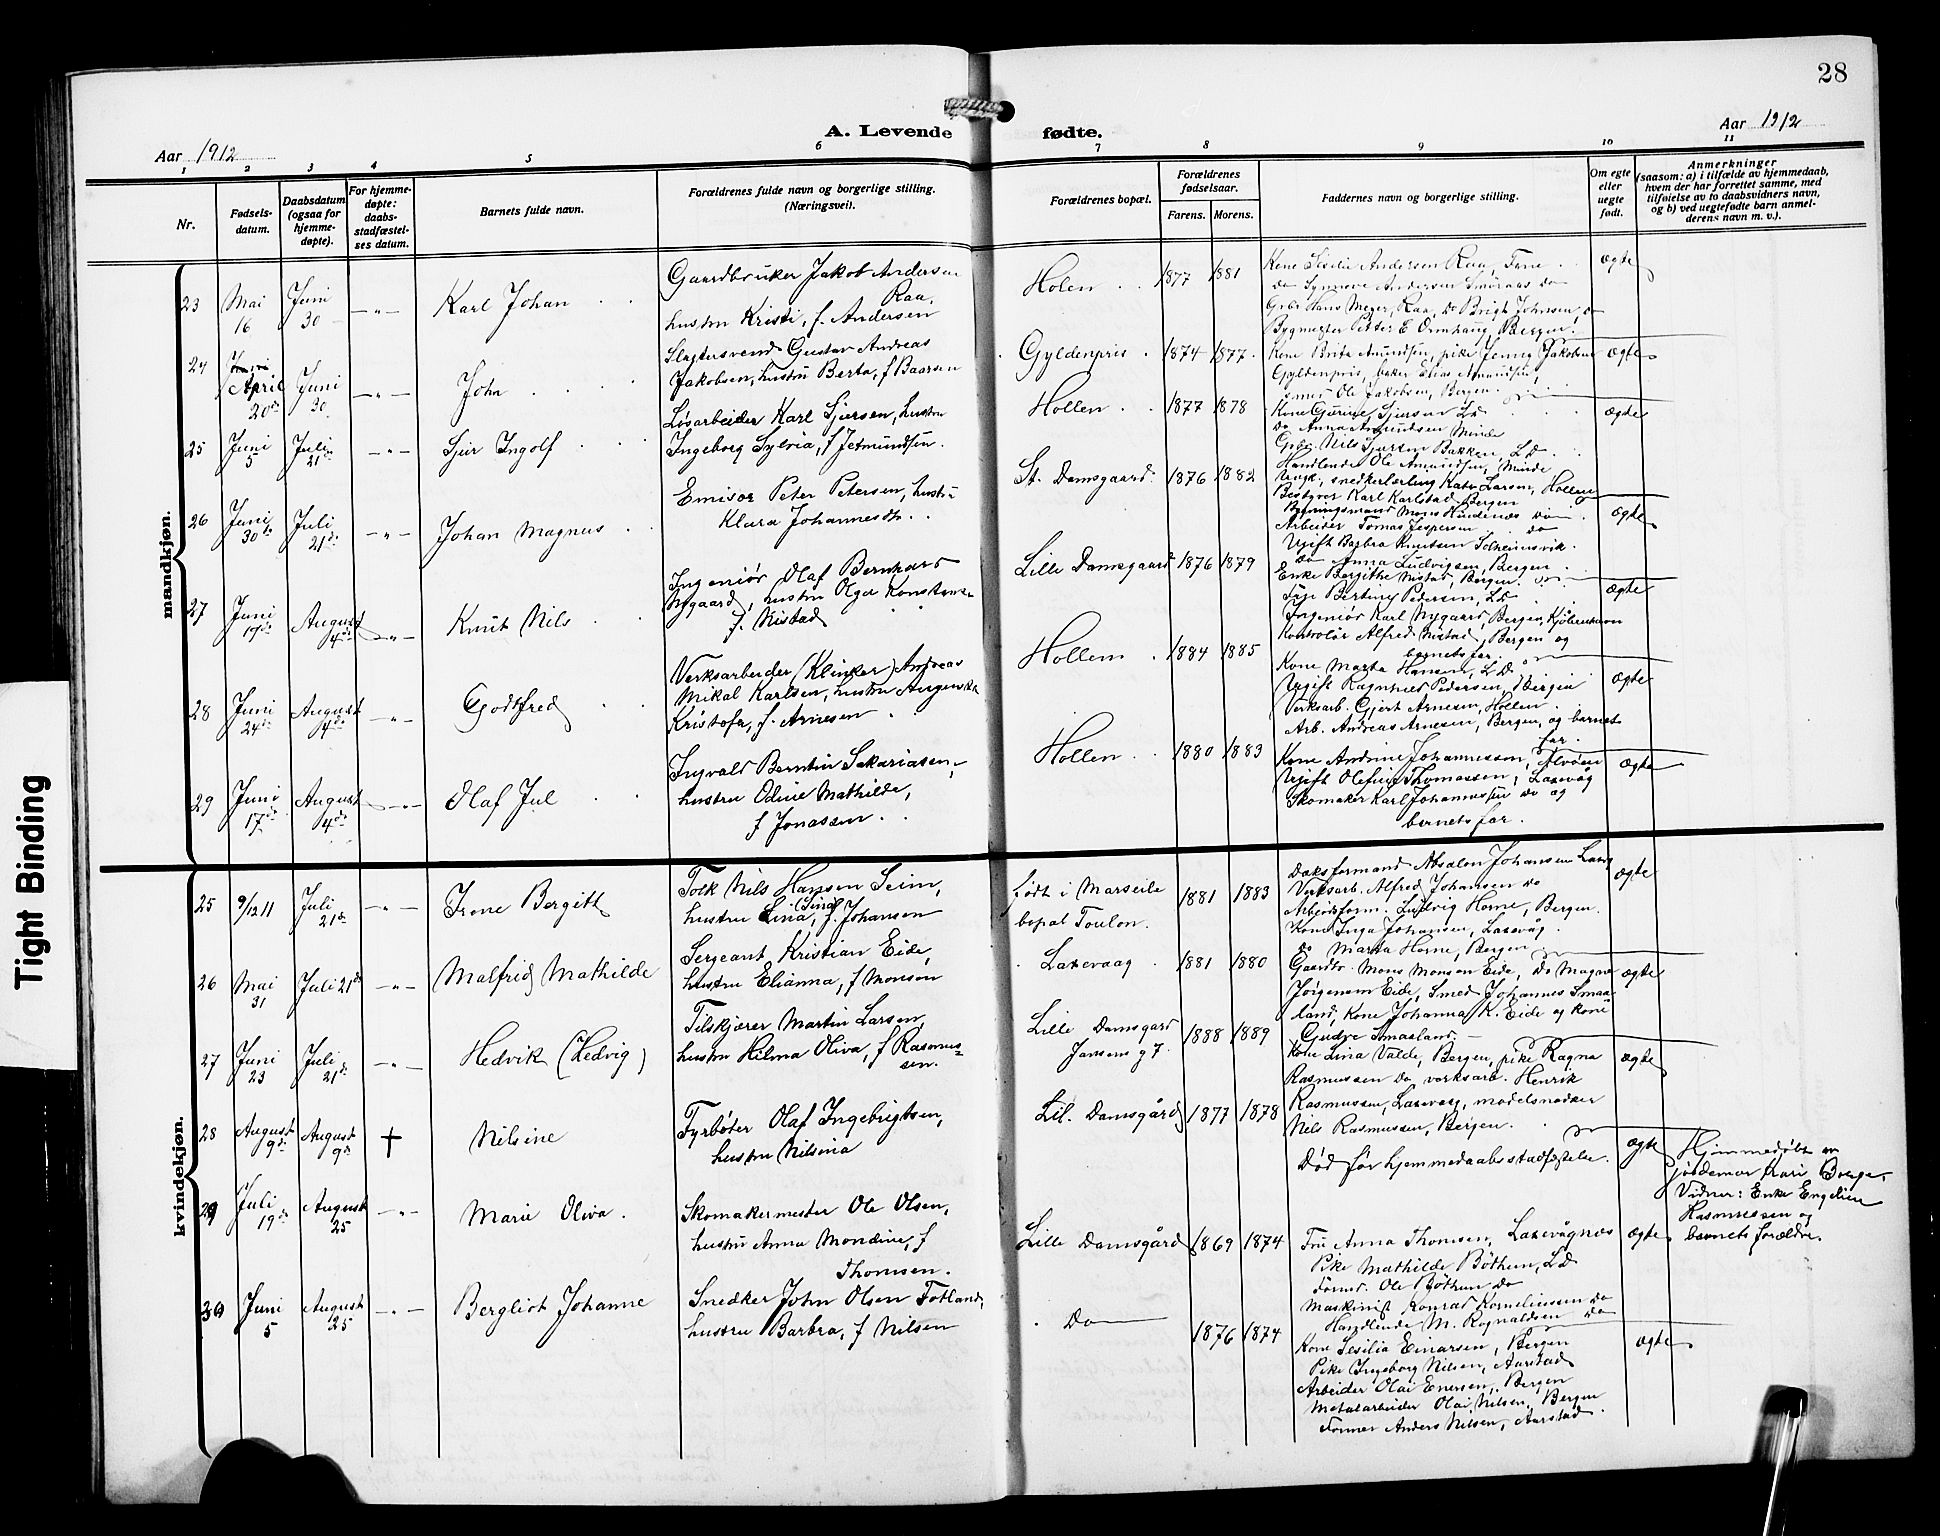 28
A. Levende fødte.
Aar 1912
Aar 1912
1 2 3 4 5 6 7 8 9 10 11
Nr.
Fødsels-
datum.
Daabsdatum
(ogsaa for
hjemme-
døpte).
For hjemme-
døpte:
daabs-
stadfæstel-
ses datum.
Barnets fulde navn.
Forældrenes fulde navn og borgerlige stilling.
(Næringsvei).
Forældrenes bopæl.
Forældrenes
fødselsaar.
Farens. Morens.
Faddernes navn og borgerlige stilling.
Om egte
eller
uegte
født.
Anmerkninger
(saasom: a) i tilfælde av hjemmedaab,
hvem der har forrettet samme, med
tilføielse av to daabsvidners navn,
og b) ved uegtefødte barn anmel-
derens navn m. v.).
mandkjøn.
23 Mai 16 Juni 30 -"- Karl Johan
Gaardbruker Jakob Andersen
Raa,
hustru Kristi, f. Andersen
Holen 1877 1881
Kone Sesilie Andersen Raa, Fane
do Synneve Andersen Smøraas do
Gbr. Hans Meyer, Raa, Do Brigt Johnsen, do
Bygmester Petter E Ormhaug, Bergen.
ægte
24 April 20de Juni 30 -"- John
Slagtersvend Gustav Andreas
Jakobsen, hustru Berta, f Baarsen
Gyldenpris 1874 1877
Kone Brita Amundsen, pike Jenny Jakobsen
Gyldenpris, baker Elias Amundsen,
smed Ole Jakobsen, Bergen.
ægte
25 Juni 5 Juli 21de -"- Sjur Ingolf
Løsarbeider Karl Sjursen, hustru
Ingeborg Sylvia, f Jetmundsen.
Hollen 1877 1878
Kone Gurine Sjursen LD
Do Anna Amundsen Minde
Gbr. Nils Sjursen Bakken, LD.
Handlende Ole Amundsen, Minde
ægte
26 Juni 30te Juli 21de -"- Johan Magnus
Emisær Peter Petersen, hustru
Klara Johannesdtr.
St. Damsgaard 1876 1882
Ungk., snedkerlærling Larsen, Hollen
Bestyrer Karl Karlstad Bergen
Bygningsmand Mons Do
Arbeider Tomas Jespersen do
Ugift Barbra Knutsen Solheimsvik.
Do Anna Ludvigsen, Bergen
ægte
27 Juni 17de August 4de -"- Knut Nils
Ingeniør Olaf Bernhard
Nygaard, hustru Olga Konstanse
f. Nistad
Lille Damsgaard 1876 1879
Enke Bergithe Nistad, Bergen.
Frue Bertine Pedersen, LD
Ingeniør Karl Nygaard, Bergen, Kjøbenhavn
Kontrolør Alfred Nistad, Bergen og
barnets far.
ægte
28 Juni 24de August 4de -"- Godtfred
Verksarbeider (Klinker) Andreas
Mikal Karlsen, hustru
Kristofa, f. Arnesen
Hollem 1884 1885
Kone Marta Hansen, LD
Ugift Ragnhild Pedersen, Bergen
Verksarb. Gjert Arnesen, Hollen
Arb. Andreas Arnesen, Bergen, og barnets
far.
ægte
29 Juni 17de August 4de -"- Olaf Jul
Ingvald Berntin Sakariasen,
hustru Odine Mathilde,
f Jonassen.
Hollen 1880 1883
Kone Andrine Johannessen, Alvøen
Ugift Olefine Thomassen, Laxevåg
Skomaker Karl Johannessen do og
barnets far.
ægte
kvindekjøn.
25 9/12 11 Juli 21de -"- Irene Bergitt
Tolk Nils Hansen Seim,
(Sina)
hustru Lina, f. Johansen
født i Marseile
bopæl Toulon.
1881 1883
Daksformand Absalon Johansen Laxv
Verksarb. Alfred Johansen do
Arbeidsform. Ludvig Horne, Bergen.
Kone Inga Johansen, Laxevåg.
Do Marta Horne, Bergen
ægte
26 Mai 31 Juli 21de -"- Malfrid Mathilde
Sergeant Kristian Eide,
hustru Elianna, f Monsen
Laxevaag 1881 1880
Gaardbr. Mons Monsen Eide, Do Magne
Jørgensen Eide, Smed Johannes Smaa-
land, Kone Johanna K. Eide og kone
Gudve Smaaland.
ægte
27 Juni 23 Juli 21de -"- Hedvik (Hedvig)
Tilskjærer Martin Larsen,
hustru Hilma Oliva, f Rasmus-
sen.
Lille Damsgård
Jansens g 7.
1888 1889
Kone Lina Valde, Bergen, pike Ragna
Rasmussen Do verksarb. Henrik
Rasmussen, Laxevåg, modelsnedker
Nils Rasmussen, Bergen.
ægte
28 August 9de August 9de † Nilsine
Fyrbøter Olaf Ingebrigtsen,
hustru Nilsina
Lil. Damsgård 1877 1878
Død før hjemmedaabsstadfæstelse.
ægte
Hjemmedøbt av
jordemor Kari Borge.
Vidner: Enke Engeline
Rasmussen og
barnets forældre.
29 Juli 19de August 25 -"- Marie Oliva.
Skomakermester Ole Olsen,
hustru Anna Mondine, f
Thomsen.
Lille Damsgård 1869 1874
Fru Anna Thomsen, Laxevågnæs
Pike Mathilde Bøthun, LD
Former Ole Bøthun do
Maskinist Konrad Korneliussen do
Handlende M. Ragnaldsen do
ægte
30 Juni 5 August 25 -"- Bergliot Johanne
Snedker John Olsen Totland,
hustru Barbra, f Nilsen
Do 1876 1874
Kone Sesilia Einarsen, Bergen
Pike Ingeborg Nilsen, Aarstad
Arbeider Olai Enersen, Bergen
Metalarbeider Olai Nilsen, Bergen
Former Anders Nilsen, Aarstad.
ægte
Tight Binding